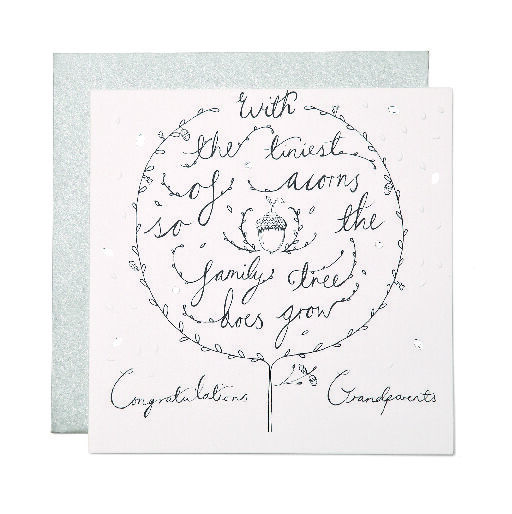 With
the tiniest
of acorns
so the
family tree
does grow
Congratulations Grandparents